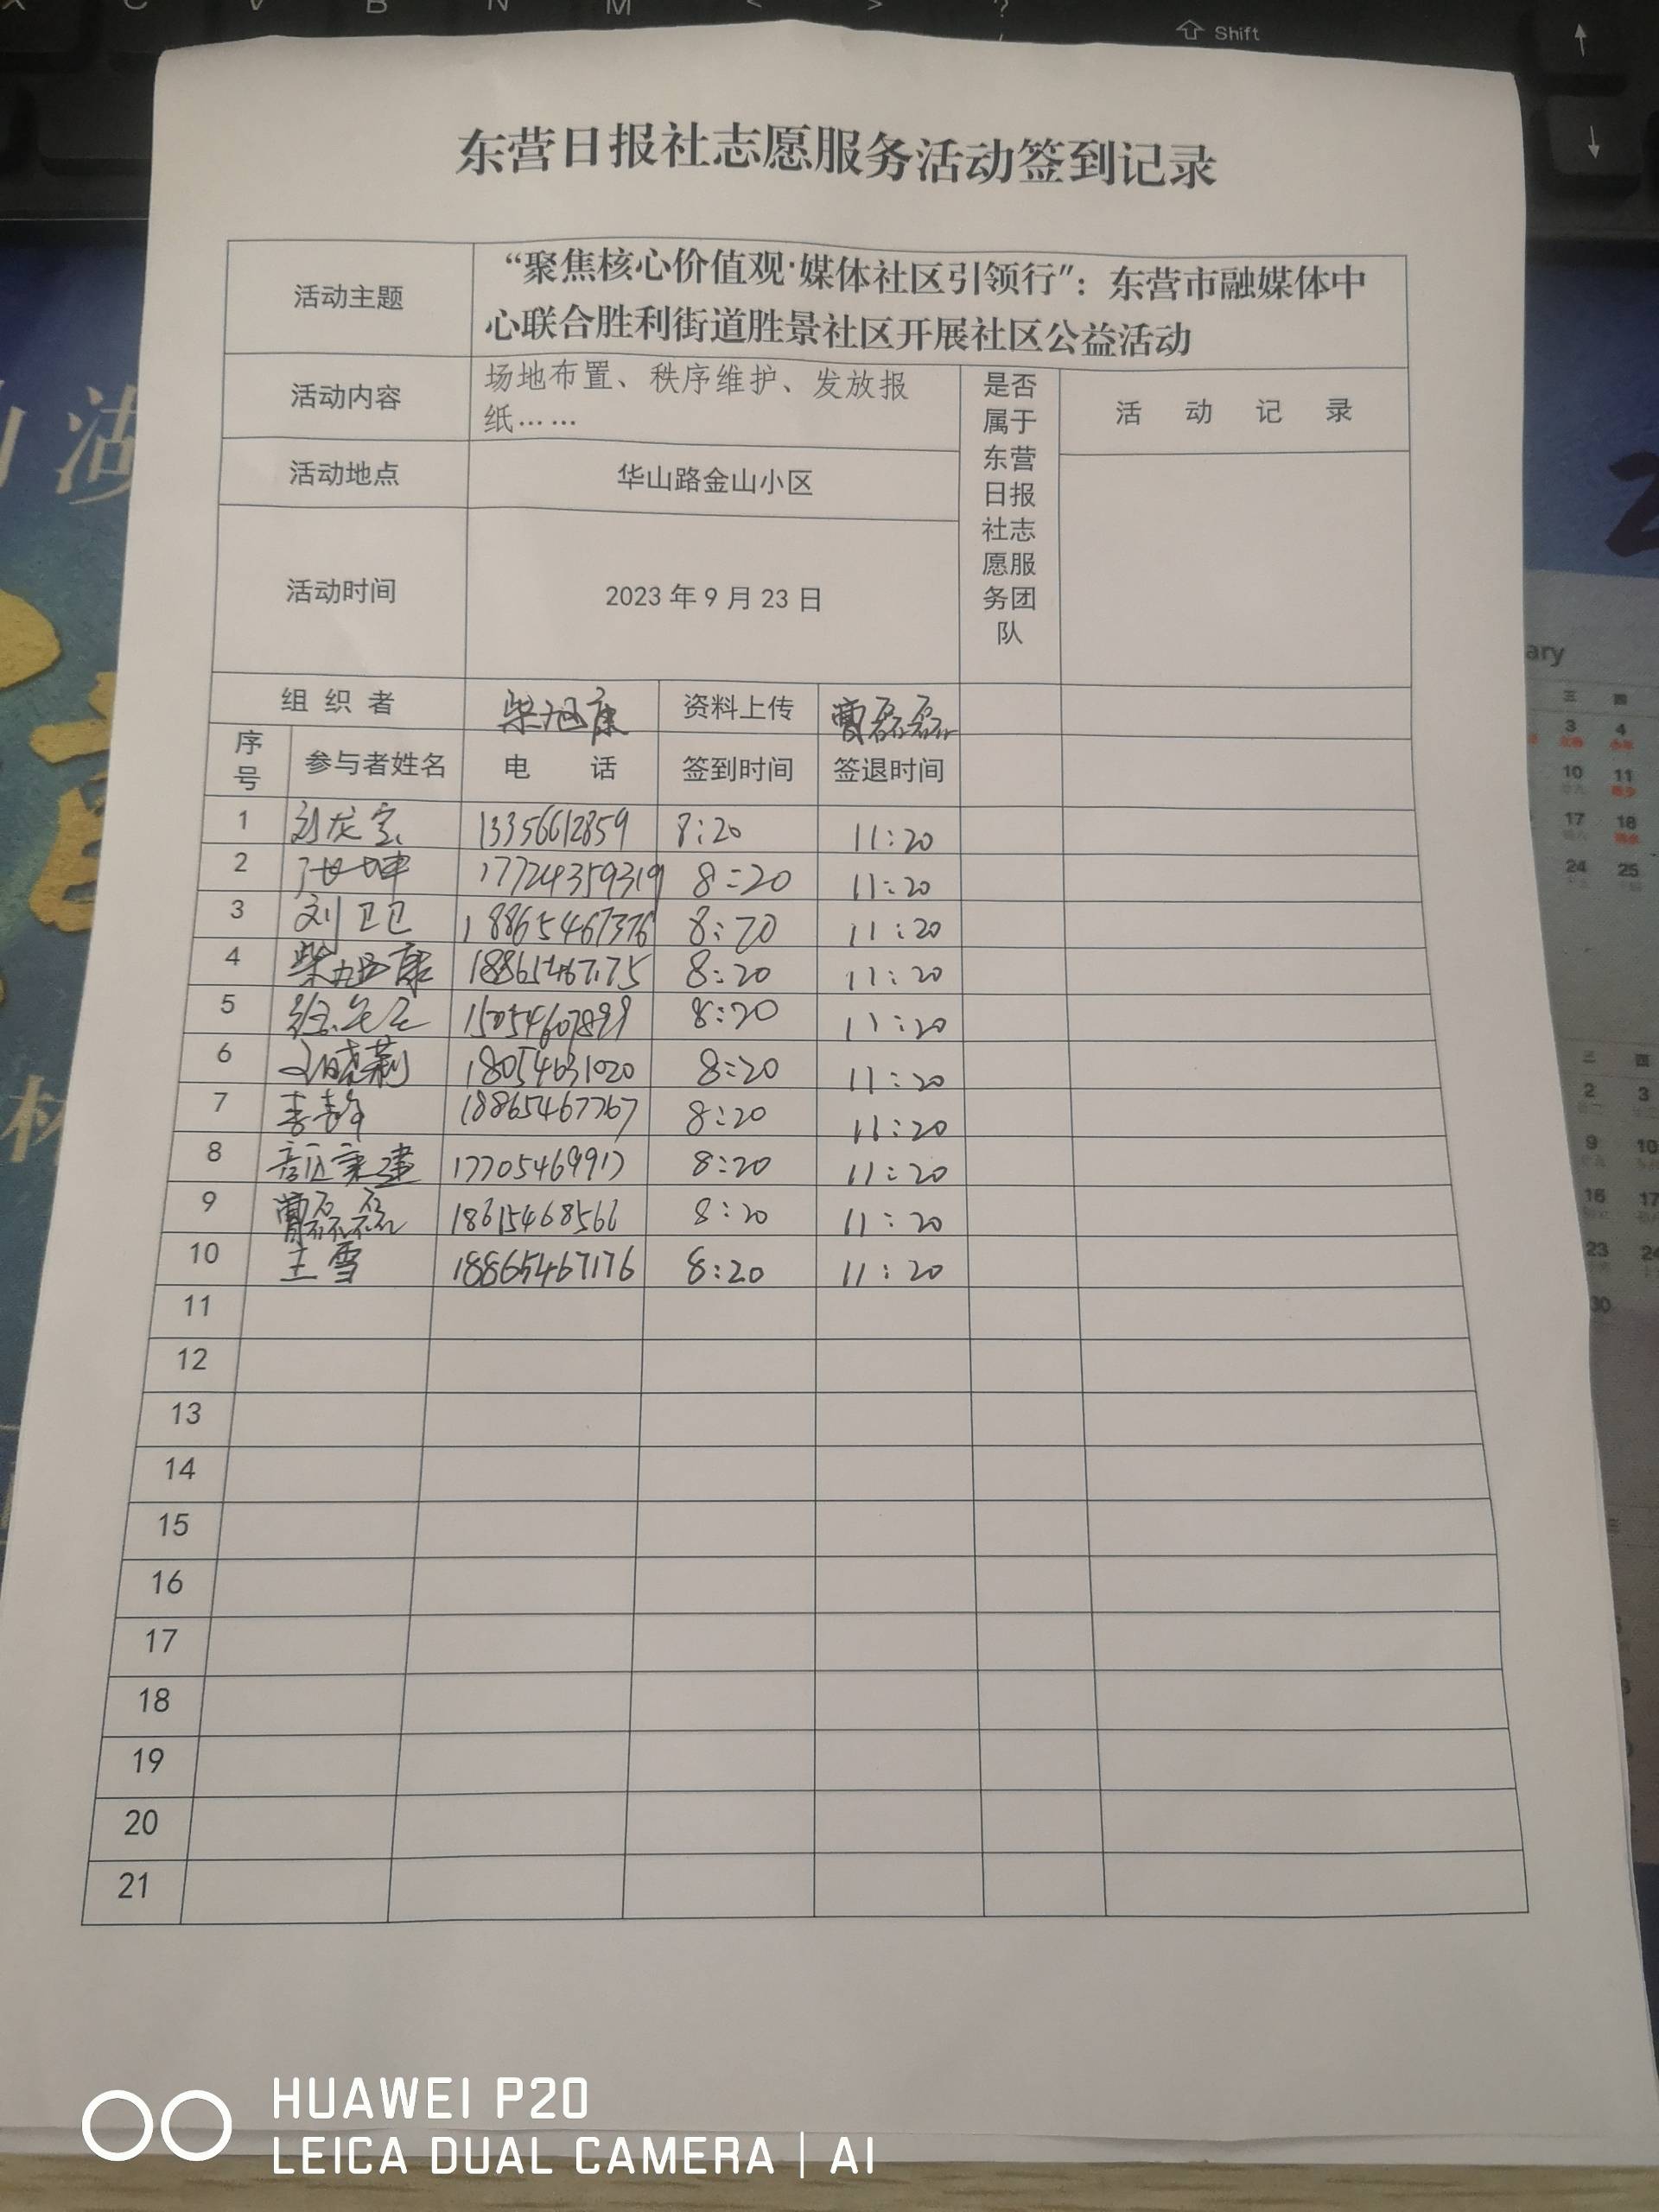 Shift
东营日报社志愿服务活动签到记录
活动主题
“聚焦核心价值观·媒体社区引领行”：东营市融媒体中
心联合胜利街道胜景社区开展社区公益活动
活动内容
场地布置、秩序维护、发放报
纸……
是否
属于
东营
日报
社志
愿服
务团
队
活 动 记 录
活动地点
华山路金山小区
活动时间
2023 年 9 月 23 日
组 织 者 柴旭康 资料上传 曹磊磊
序
号 参与者姓名 电 话 签到时间 签退时间
1 刘龙宝 13356612859 8:20 11:20
2 张坤 17724359319 8:20 11:20
3 刘卫卫 18865467376 8:20 11:20
4 柴旭康 18865467175 8:20 11:20
5 15054607899 8:20 11:20
6 18054631020 8:20 11:20
7 李静 18865467767 8:20 11:20
8 17705469917 8:20 11:20
9 曹磊磊 18615468566 8:20 11:20
10 王雪 18865467176 8:20 11:20
11
12
13
14
15
16
17
18
19
20
21
HUAWEI P20
LEICA DUAL CAMERA | AI